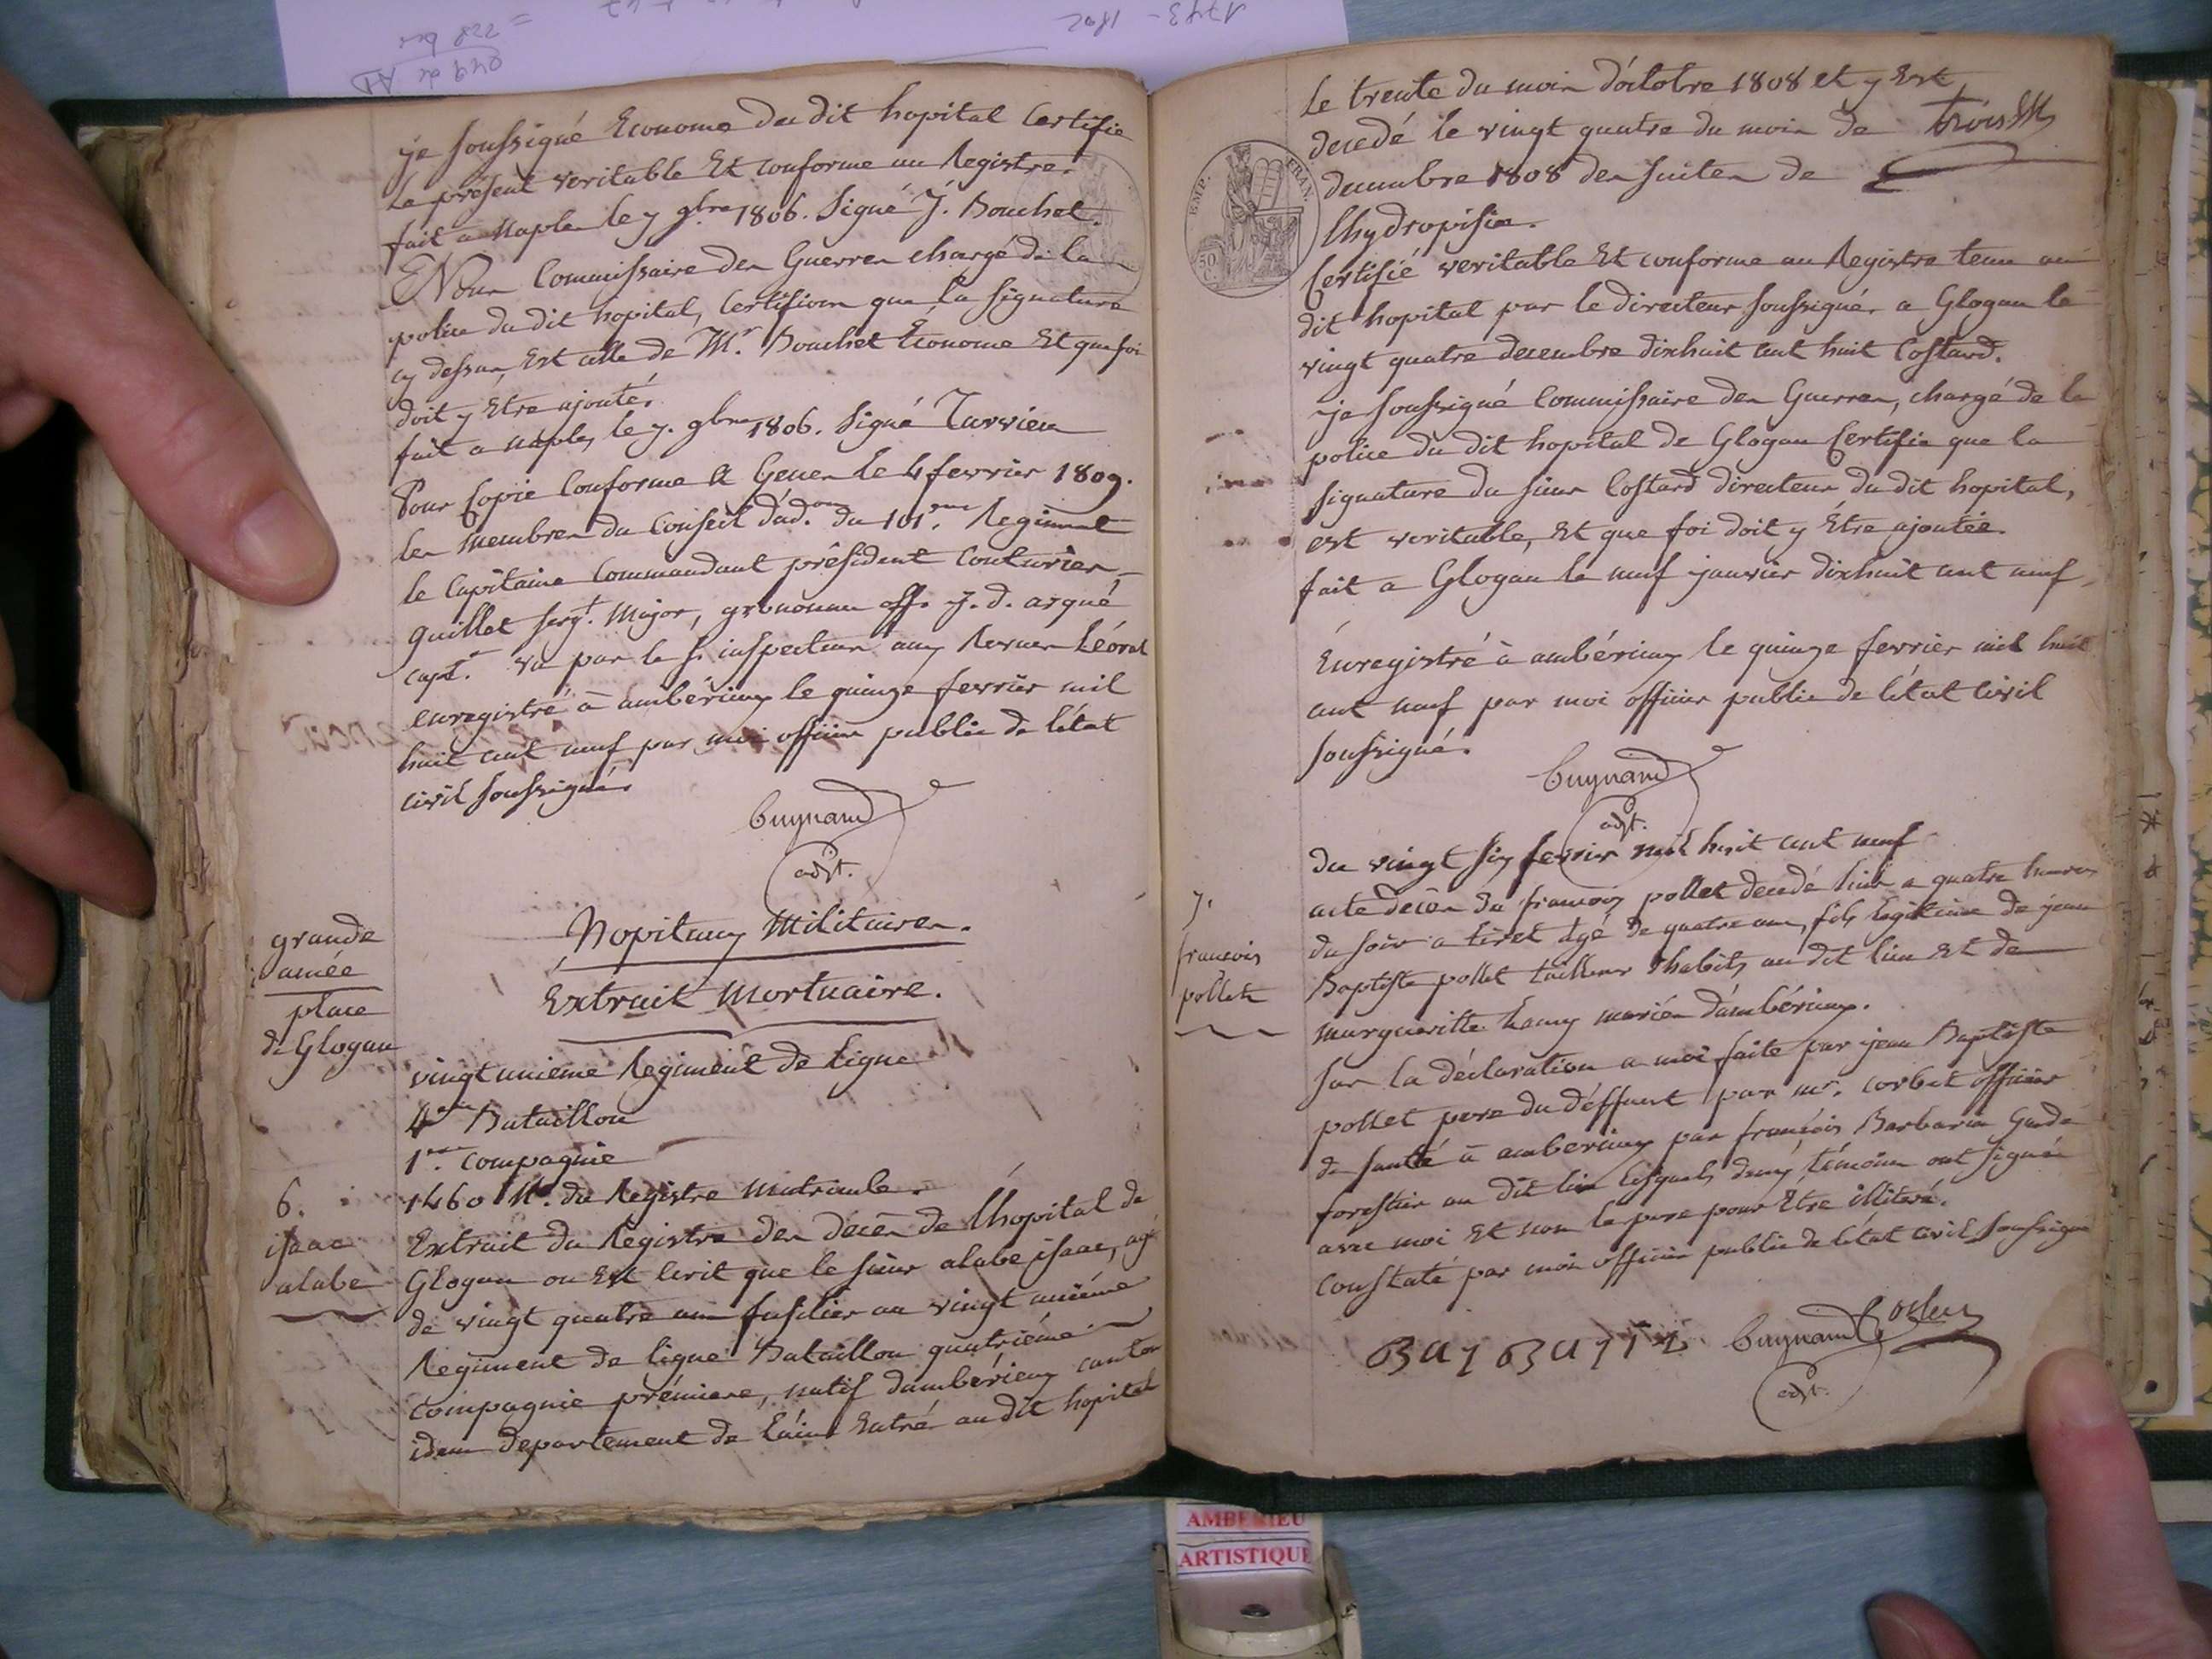 je soussigné Econome du dit hopital Certifie
Le présent veritable Et conforme au Registre.
fait a Naples le 7 9bre 1806. Signé J. Bouchet.
Nous Commissaire des Guerres chargé de la
police du dit hopital, Certifions que la signature
cy dessus, Est celle de Mr. Bouchet Econome Et que foi
doit y Etre ajoutée
fait a naples, le 7. 9bre 1806. Signé
Pour Copie Conforme A Genes le 4 fevrier 1809.
les membres du Conseil d'ad.on du 101.eme Regiment
le Capitaine Commandant président Couturier
guillet serg.t Major, off. J. d. argué
capt. vu par le s. inspecteur aux Revues Léoral
enregistré à ambérieux le quinze fevrier mil
huit cent neuf par moi officier public de l'état
civil soussigné.
Cuynand
adjt.
grande
armée
place
de Glogau
hopitaux Militaires.
Extrait Mortuaire.
vingt unieme Regiment de Ligne
4me Bataillon
1ere Compagnie
1460 No. du Registre Matricule.
6.
isaac
alabe
Extrait du Registre des décès de lhopital de
Glogau ou Est Ecrit que le sieur alabe isaac, agé
de vingt quatre ans fusilier au vingt unième
Regiment de ligne Bataillon quatrième
compagnie prémiere, natif dambérieux canton
idem departement de l'ain Entré au dit hopital
Le trente du mois d'octobre 1808 et y Est
decedé le vingt quatre du mois de trois M
decembre 1808 des suites de
lhydropisie.
EMP. FRAN.
50
Certifié veritable Et conforme au Registre tenu au
dit hopital par le directeur soussigné, a Glogau le
vingt quatre decembre dixhuit cent huit Costard.
je soussigné Commissaire des Guerres, chargé de la
police du dit hopital de Glogau Certifie que la
signature du sieur Costard directeur du dit hopital,
est veritable, Et que foi doit y Être ajoutée.
fait a Glogau le neuf janvier dixhuit cent neuf
Enregistré à ambérieux le quinze fevrier mil huit
cent neuf par moi officier public de l'état civil
soussigné.
Cuynand
adjt.
du vingt six fevrier mil huit cent neuf
7.
francois
pollet
acte décès de françois pollet decedé hier a quatre heures
du soir a tiret agé de quatre ans, fils legitime de jean
Baptiste pollet tailleur d'habits au dit lieu Et de
marguerite mariés d'ambérieux.
sur la déclaration a moi faite par jean Baptiste
pollet pere du déffunt par mr. corbet officier
de santé à amberieux par françois Barbarin Garde
forestier au dit lieu lesquels deux témoins ont signés
avec moi Et non le pere pour Être illiteré.
Constaté par moi officier public de l'état civil soussigné
Cuynand
adjt.
AMBERIEU
ARTISTIQUE